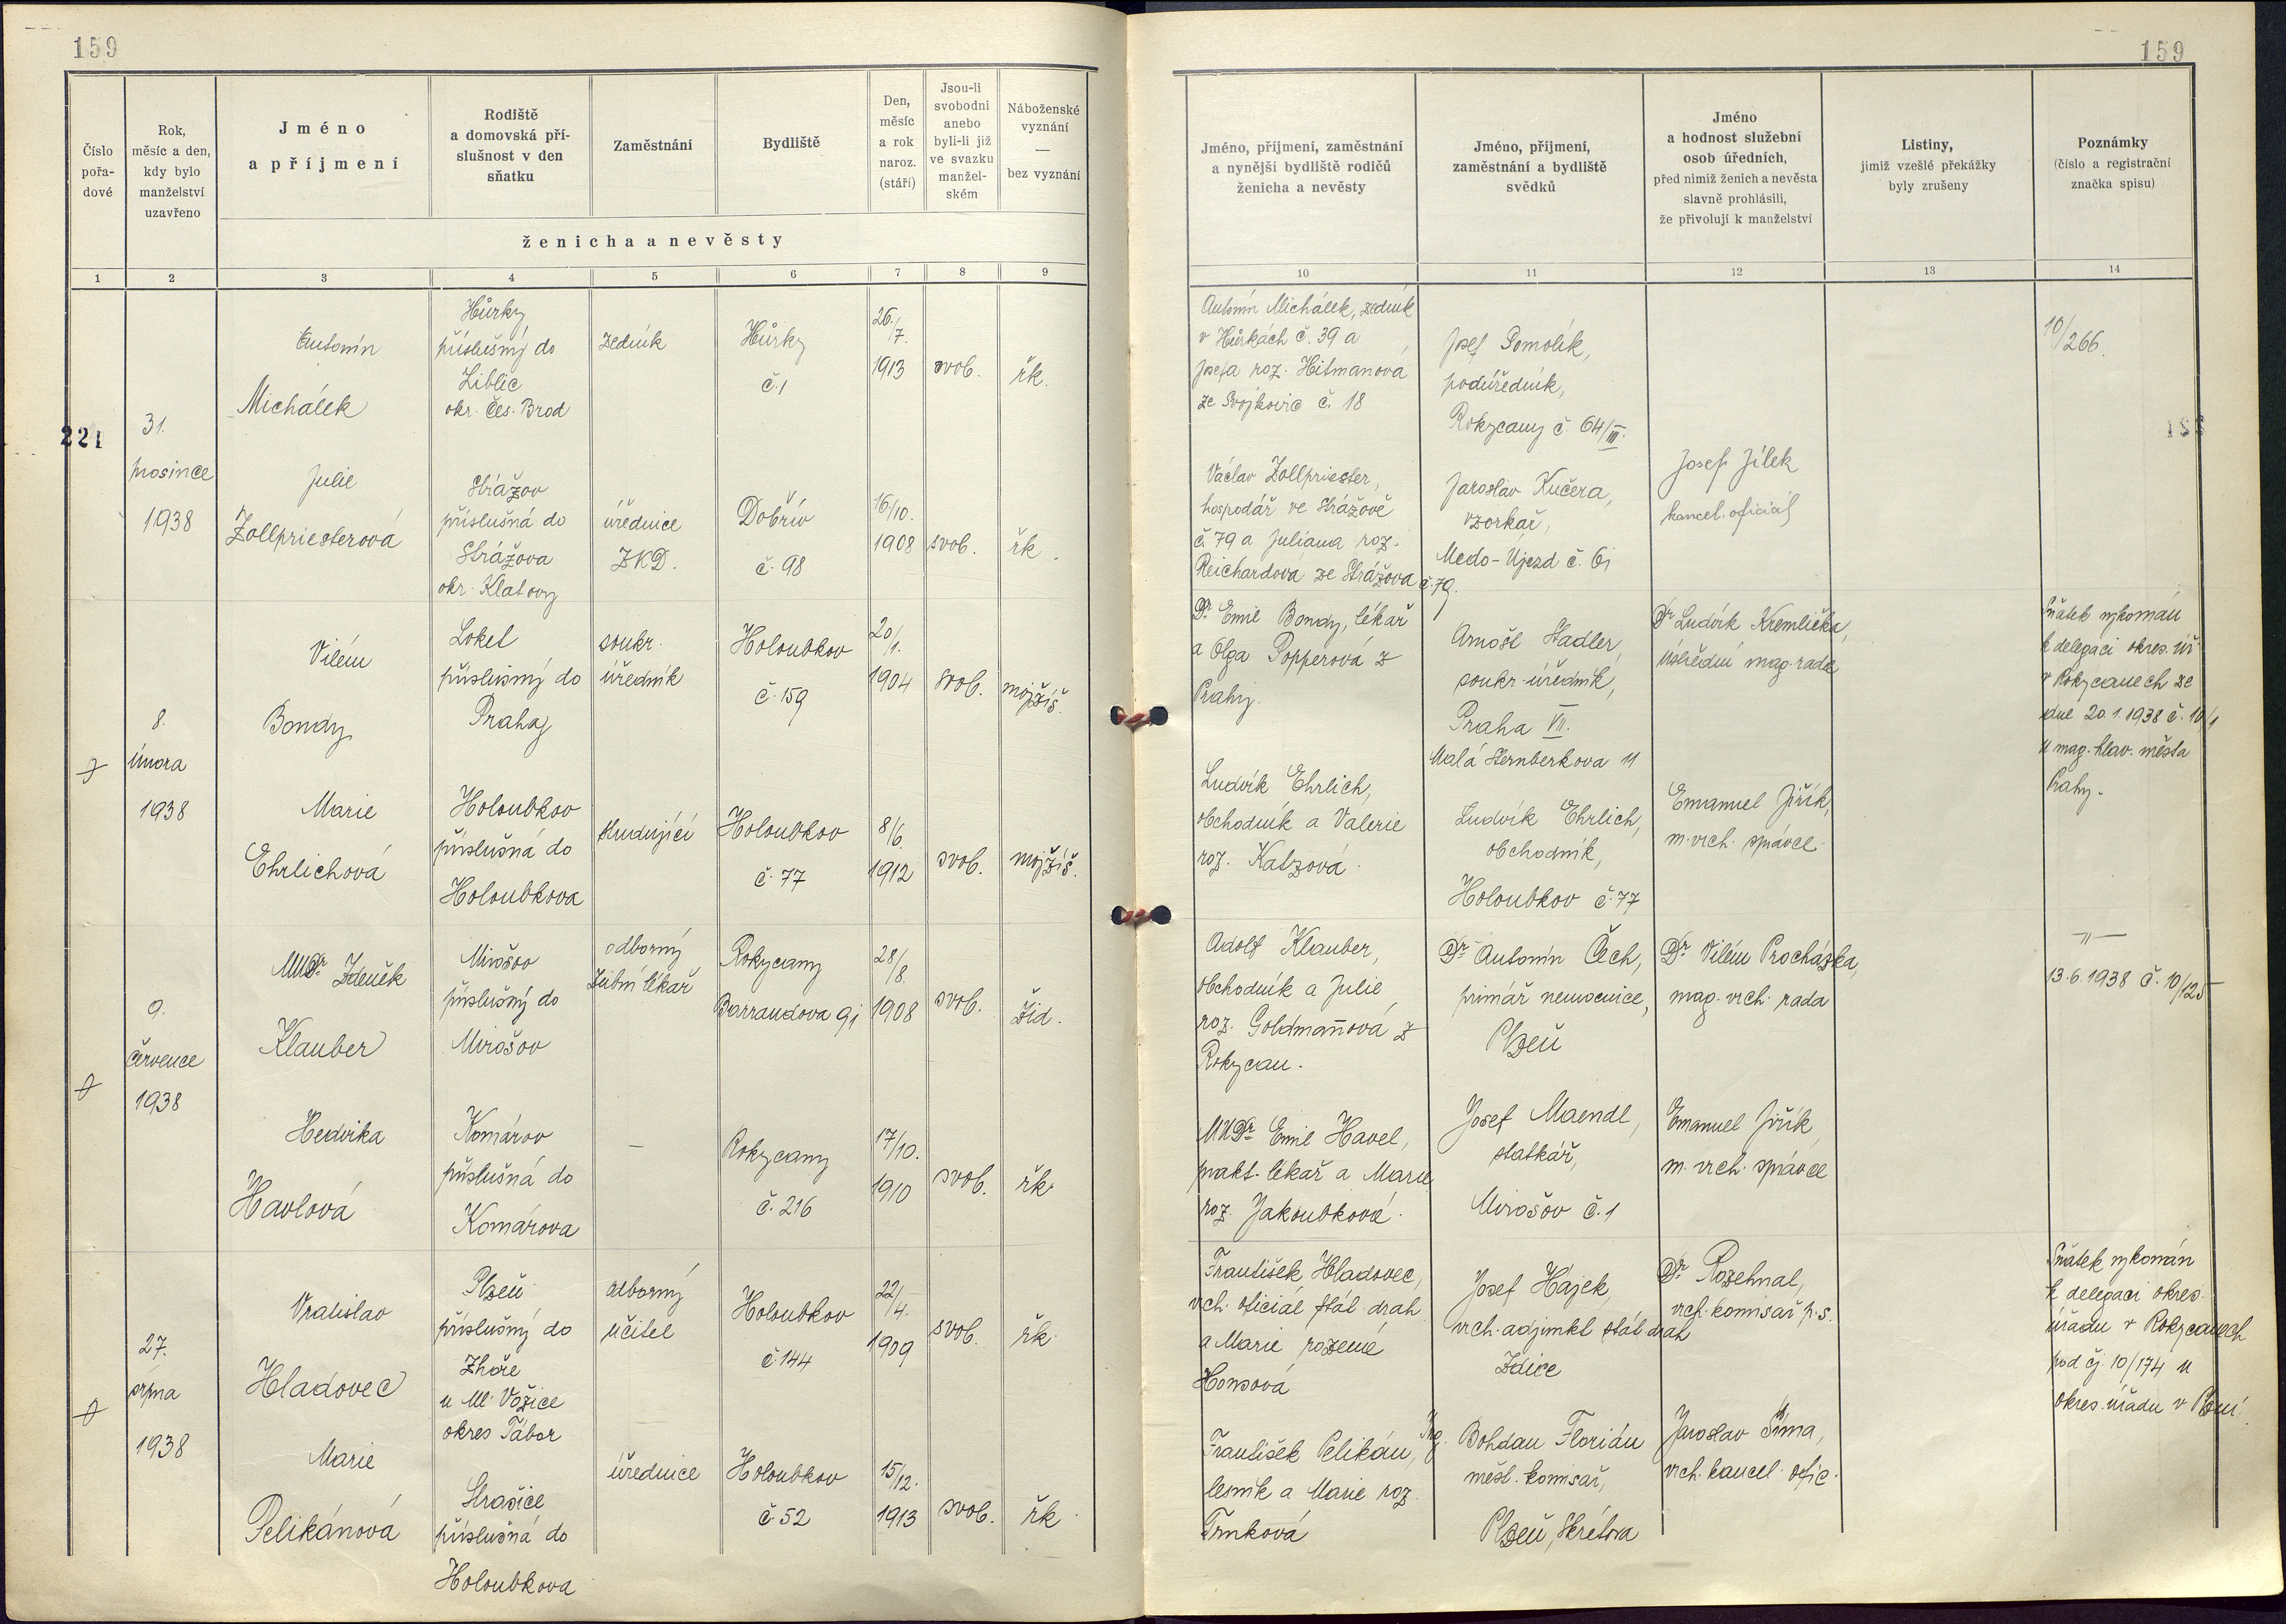 159
159
Číslo
pořa-
dové
Rok,
měsíc a den,
kdy bylo
manželství
uzavřeno
Jméno
a příjmení
Rodiště
a domovská pří-
slušnost v den
sňatku
Zaměstnání
Bydliště
Den,
měsíc
a rok
naroz.
(stáří)
Jsou-li
svobodni
anebo
byli-li již
ve svazku
manžel-
ském
Náboženské
vyznání
—
bez vyznání
ženicha a nevěsty
Jméno, příjmení, zaměstnání
a nynější bydliště rodičů
ženicha a nevěsty
Jméno, příjmení,
zaměstnání a bydliště
svědků
Jméno
a hodnost služební
osob úředních,
před nimiž ženich a nevěsta
slavně prohlásili,
že přivolují k manželství
Listiny,
jimiž vzešlé překážky
byly zrušeny
Poznámky
(číslo a registrační
značka spisu)
1 2 3 4 5 6 7 8 9 10 11 12 13 14
221
31.
prosince
1938
Antonín
Michálek
Hůrky
příslušný do
Liblic
okr. Čes. Brod
zedník
Hůrky
č. 1
26./7.
1913
svob.
řk.
Antonín Michálek, zedník
v Hůrkách č. 39 a
Josefa roz. Hitmanová
ze Svojkovic č. 18
Josef Pomolík,
podúředník,
Rokycany č. 64/III.
10/266.
Julie
Zollpriesterová
Strážov
příslušná do
Strážova
okr. Klatovy
úřednice
ZKD.
Dobřív
č. 98
16/10.
1908
svob.
řk.
Václav Zollpriester,
hospodář ve Strážově
č. 79 a Juliana roz.
Reichardova ze Strážova č. 79.
Jaroslav Kučera,
vzorkař,
Medo-Újezd č. 61
Josef Jílek
kancel. oficiál
8.
února
1938
Vilém
Bondy
Loket
příslušný do
Prahy
soukr.
úředník
Holoubkov
č. 159
20/1.
1904
svob.
mojžíš.
Dr Emil Bondy, lékař
a Olga Popperová z
Prahy.
Arnošt Stadler,
soukr. úředník,
Praha VII.
Malá Sternberkova 11
Dr Ludvík Kremlička,
ústřední mag. rada
Sňatek vykonán
k delegaci okres. úř.
v Rokycanech ze
dne 20.1.1938 č. 10/1
u mag. hlav. města
Prahy.
Marie
Ehrlichová
Holoubkov
příslušná do
Holoubkova
studující
Holoubkov
č. 77
8/6.
1912
svob.
mojžíš.
Ludvík Ehrlich,
obchodník a Valerie
roz. Katzová.
Ludvík Ehrlich,
obchodník,
Holoubkov č. 77
Emanuel Jiřík,
m. vrch. správce
9.
července
1938
MUDr Zdeněk
Klauber
Mirošov
příslušný do
Mirošov
odborný
zubní lékař
Rokycany
Barrandova 91
28/8.
1908
svob.
žid.
Adolf Klauber,
obchodník a Julie
roz. Goldmanová z
Rokycan.
Dr Antonín Čech,
primář nemocnice,
Plzeň
Dr Vilém Procházka,
mag. vrch. rada
—"—
13.6.1938 č. 10/125
Hedvika
Havlová
Komárov
příslušná do
Komárova
—
Rokycany
č. 216
17/10.
1910
svob.
řk.
MUDr Emil Havel,
prakt. lékař a Marie
roz. Jakoubková.
Josef Maendl,
statkář,
Mirošov č. 1
Emanuel Jiřík,
m. vrch. správce
27.
srpna
1938
Vratislav
Hladovec
Plzeň
příslušný do
Zhoře
u Ml. Vožice
okres Tábor
odborný
učitel
Holoubkov
č. 144
22/4.
1909
svob.
řk.
František Hladovec,
vrch. oficiál stát. drah
a Marie rozená
Honsová
Josef Hájek,
vrch. adjunkt stát. drah
Zdice
Dr. Rozehnal,
vrch. komisař p. s.
Sňatek vykonán
k delegaci okres.
úřadu v Rokycanech
pod čj. 10/174 u
okres. úřadu v Plzni.
Marie
Pelikánová
Strašice
příslušná do
Holoubkova
úřednice
Holoubkov
č. 52
15/12.
1913
svob.
řk.
František Pelikán,
lesník a Marie roz.
Trnková
Ing. Bohdan Florián
měst. komisař,
Plzeň, Skrétova
Jaroslav Šíma,
vrch. kancel. ofic.